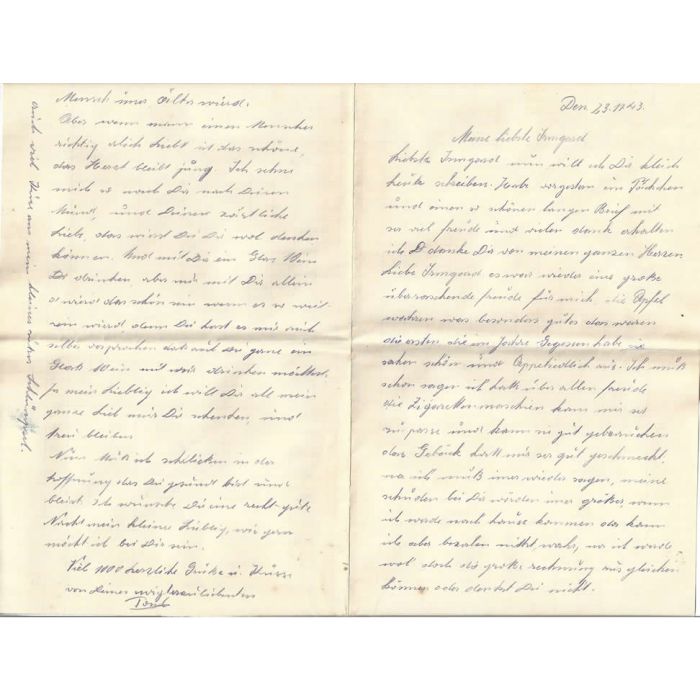 Den 23.11.43.
Meine liebste Irmgard
Liebste Irmgard nun will ich Dir gleich
heute schreiben. Habe vorgestern ein Päckchen
und einen so schönen langen Brief mit
so viel freude und vielen dank erhalten
ich danke Dir von meinen ganzen Herzen
Liebe Irmgard es war wieder eine große
überraschende freude für mich, die Apfel
wahren was besonders gutes das waren
die ersten die im Jahre Gegessen habe sie
sahen schön und Appetiedlich aus. Ich muß
schon sagen ich hatte über allen freude
die Zigaretten maschien kann mir
zu passe und kann so gut gebrauchen
das Gebäck hatt mir ser gut geschmeckt,
na ich muß imer wieder sagen, meine
schulden bei Dir würden imer größer, wenn
ich werde nach hause kommen das kann
ich aber bezalen nicht wahr, na ich werde
wol doch die große rechnung aus gleichen
können oder denkst Du nicht.
Mensch imer Älter wierd.
Aber wenn mann einen Menschen
richtig lich liebt ist das schöne,
das Herz bleibt jung. Ich sehne
mich so nach Dir nach Deinen
Mund, und Deiner zärtliche
Liebe, das wirst Du Dir wol denken
können. Und mit Dir ein Glas Wein
zu drinken aber nur mit Dir allein
o wierd das schön sein wenn es so weit
sein wierd, denn Du hast es mir auch
selbst versprochen das auf Du gerne ein
Glas Wein mit mir drinken möchtest.
Ja mein Liebling ich will Dir all mein
ganze Lieb nur Dir schenken, und
treu bleiben
Nun Muß ich schließen in der
hoffnung das Du gesund bist und
bleibst. Ich wünsche Dir eine recht gute
Nacht mein kleiner Liebling, wie gern
möcht ich bei Dir sein.
Viel 1000 herzliche Grüße u. Küsse
von Deinen ewig treuliebenden
auch viel Küsse an mein kleines süses